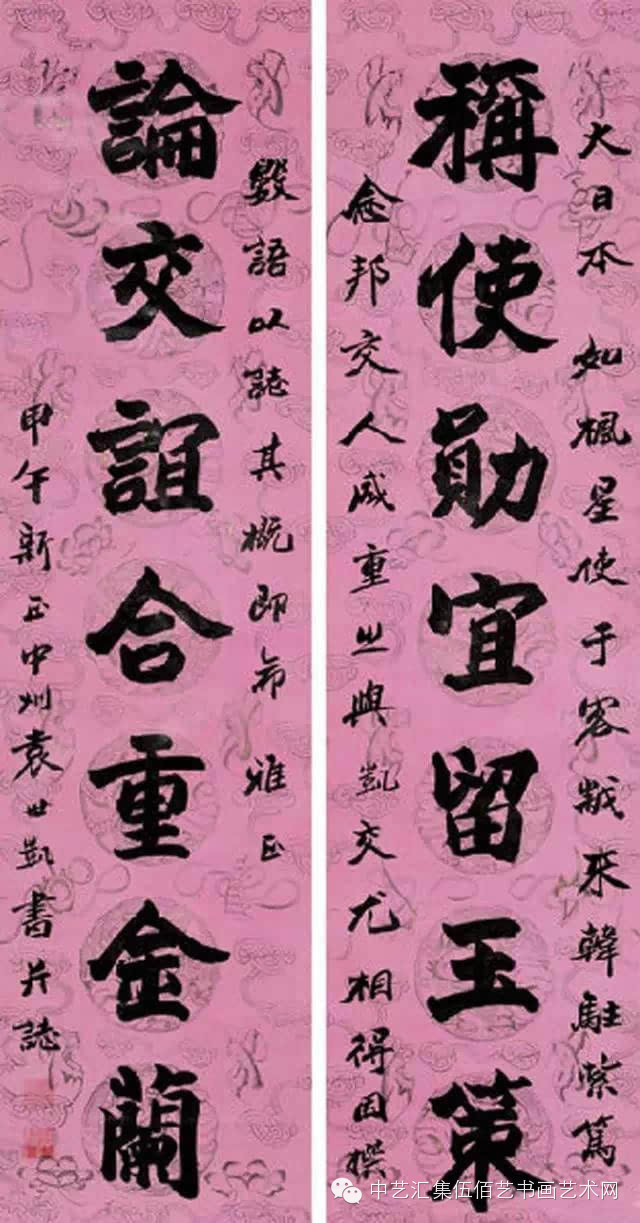 大日本 如楓星使于客歲來韓駐紮篤
稱使勛宜留玉策
念邦交人咸重之與凱交尤相得因撰
數語以誌其概即希 雅正
論交誼合重金蘭
甲午新正中州袁世凱書并誌
中艺汇集伍佰艺书画艺术网